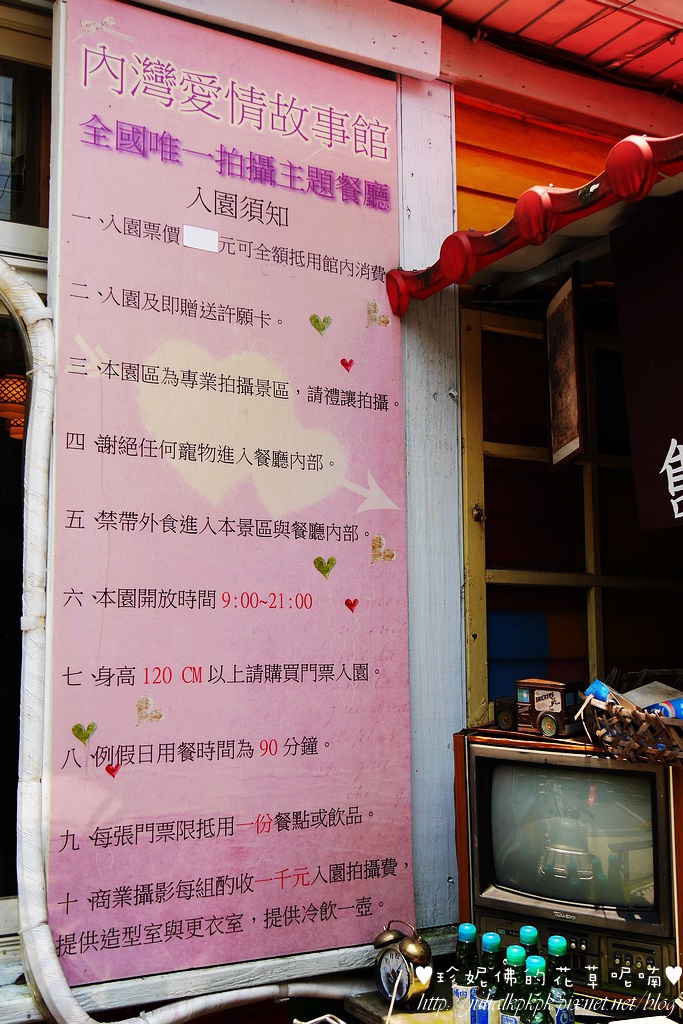 內灣愛情故事館
全國唯一拍攝主題餐廳
入園須知
一、入園票價 元可全額抵用館內消費
二、入園及即贈送許願卡。
三、本園區為專業拍攝景區，請禮讓拍攝。
四、謝絕任何寵物進入餐廳內部。
五、禁帶外食進入本景區與餐廳內部。
六、本園開放時間 9:00~21:00
七、身高 120 CM 以上請購買門票入園。
八、例假日用餐時間為 90 分鐘。
九、每張門票限抵用一份餐點或飲品。
十、商業攝影每組酌收一千元入園拍攝費，
提供造型室與更衣室，提供冷飲一壺。
♥珍妮佛的花草呢喃♥